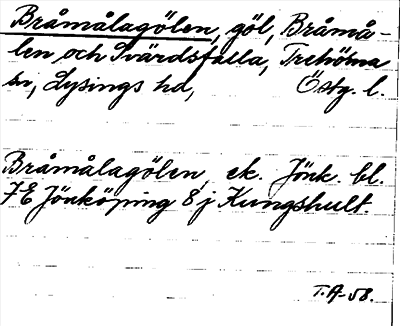 Bråmålagölen, göl, Bråmå-
len och Svärdsfalla, Trehörna
sn, Lysings hd, Östg. l.
Bråmålagölen, ek. Jönk. bl.
7E Jönköping 8j Kungshult.
T.A-58.